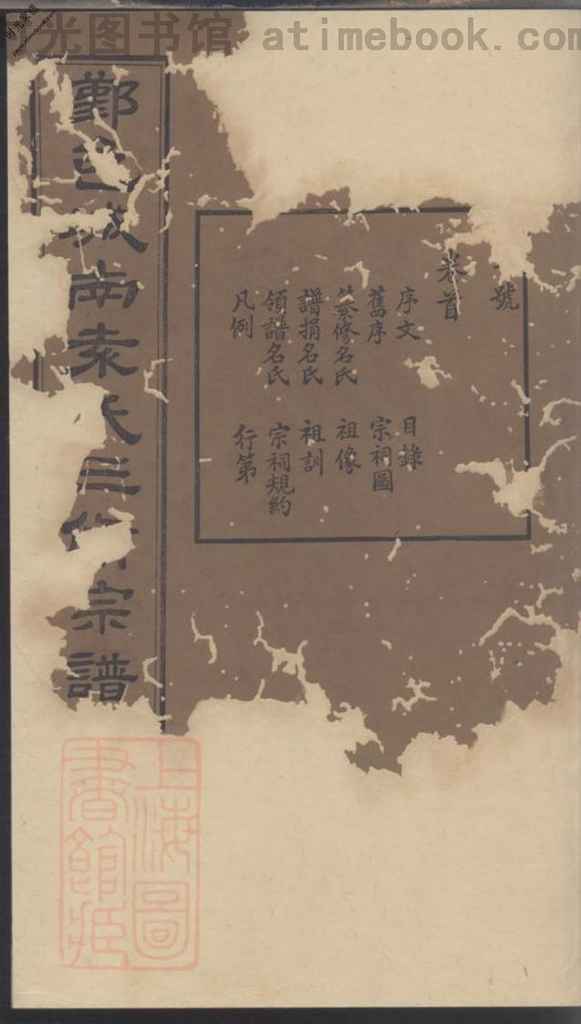 光图书馆 atimebook.com
號
卷首
序文 目錄
舊序 宗祠圖
纂修名氏 祖像
譜捐名氏 祖訓
領譜名氏 宗祠規約
凡例 行第
鄭邑城南袁氏三修宗譜
上海圖書館藏